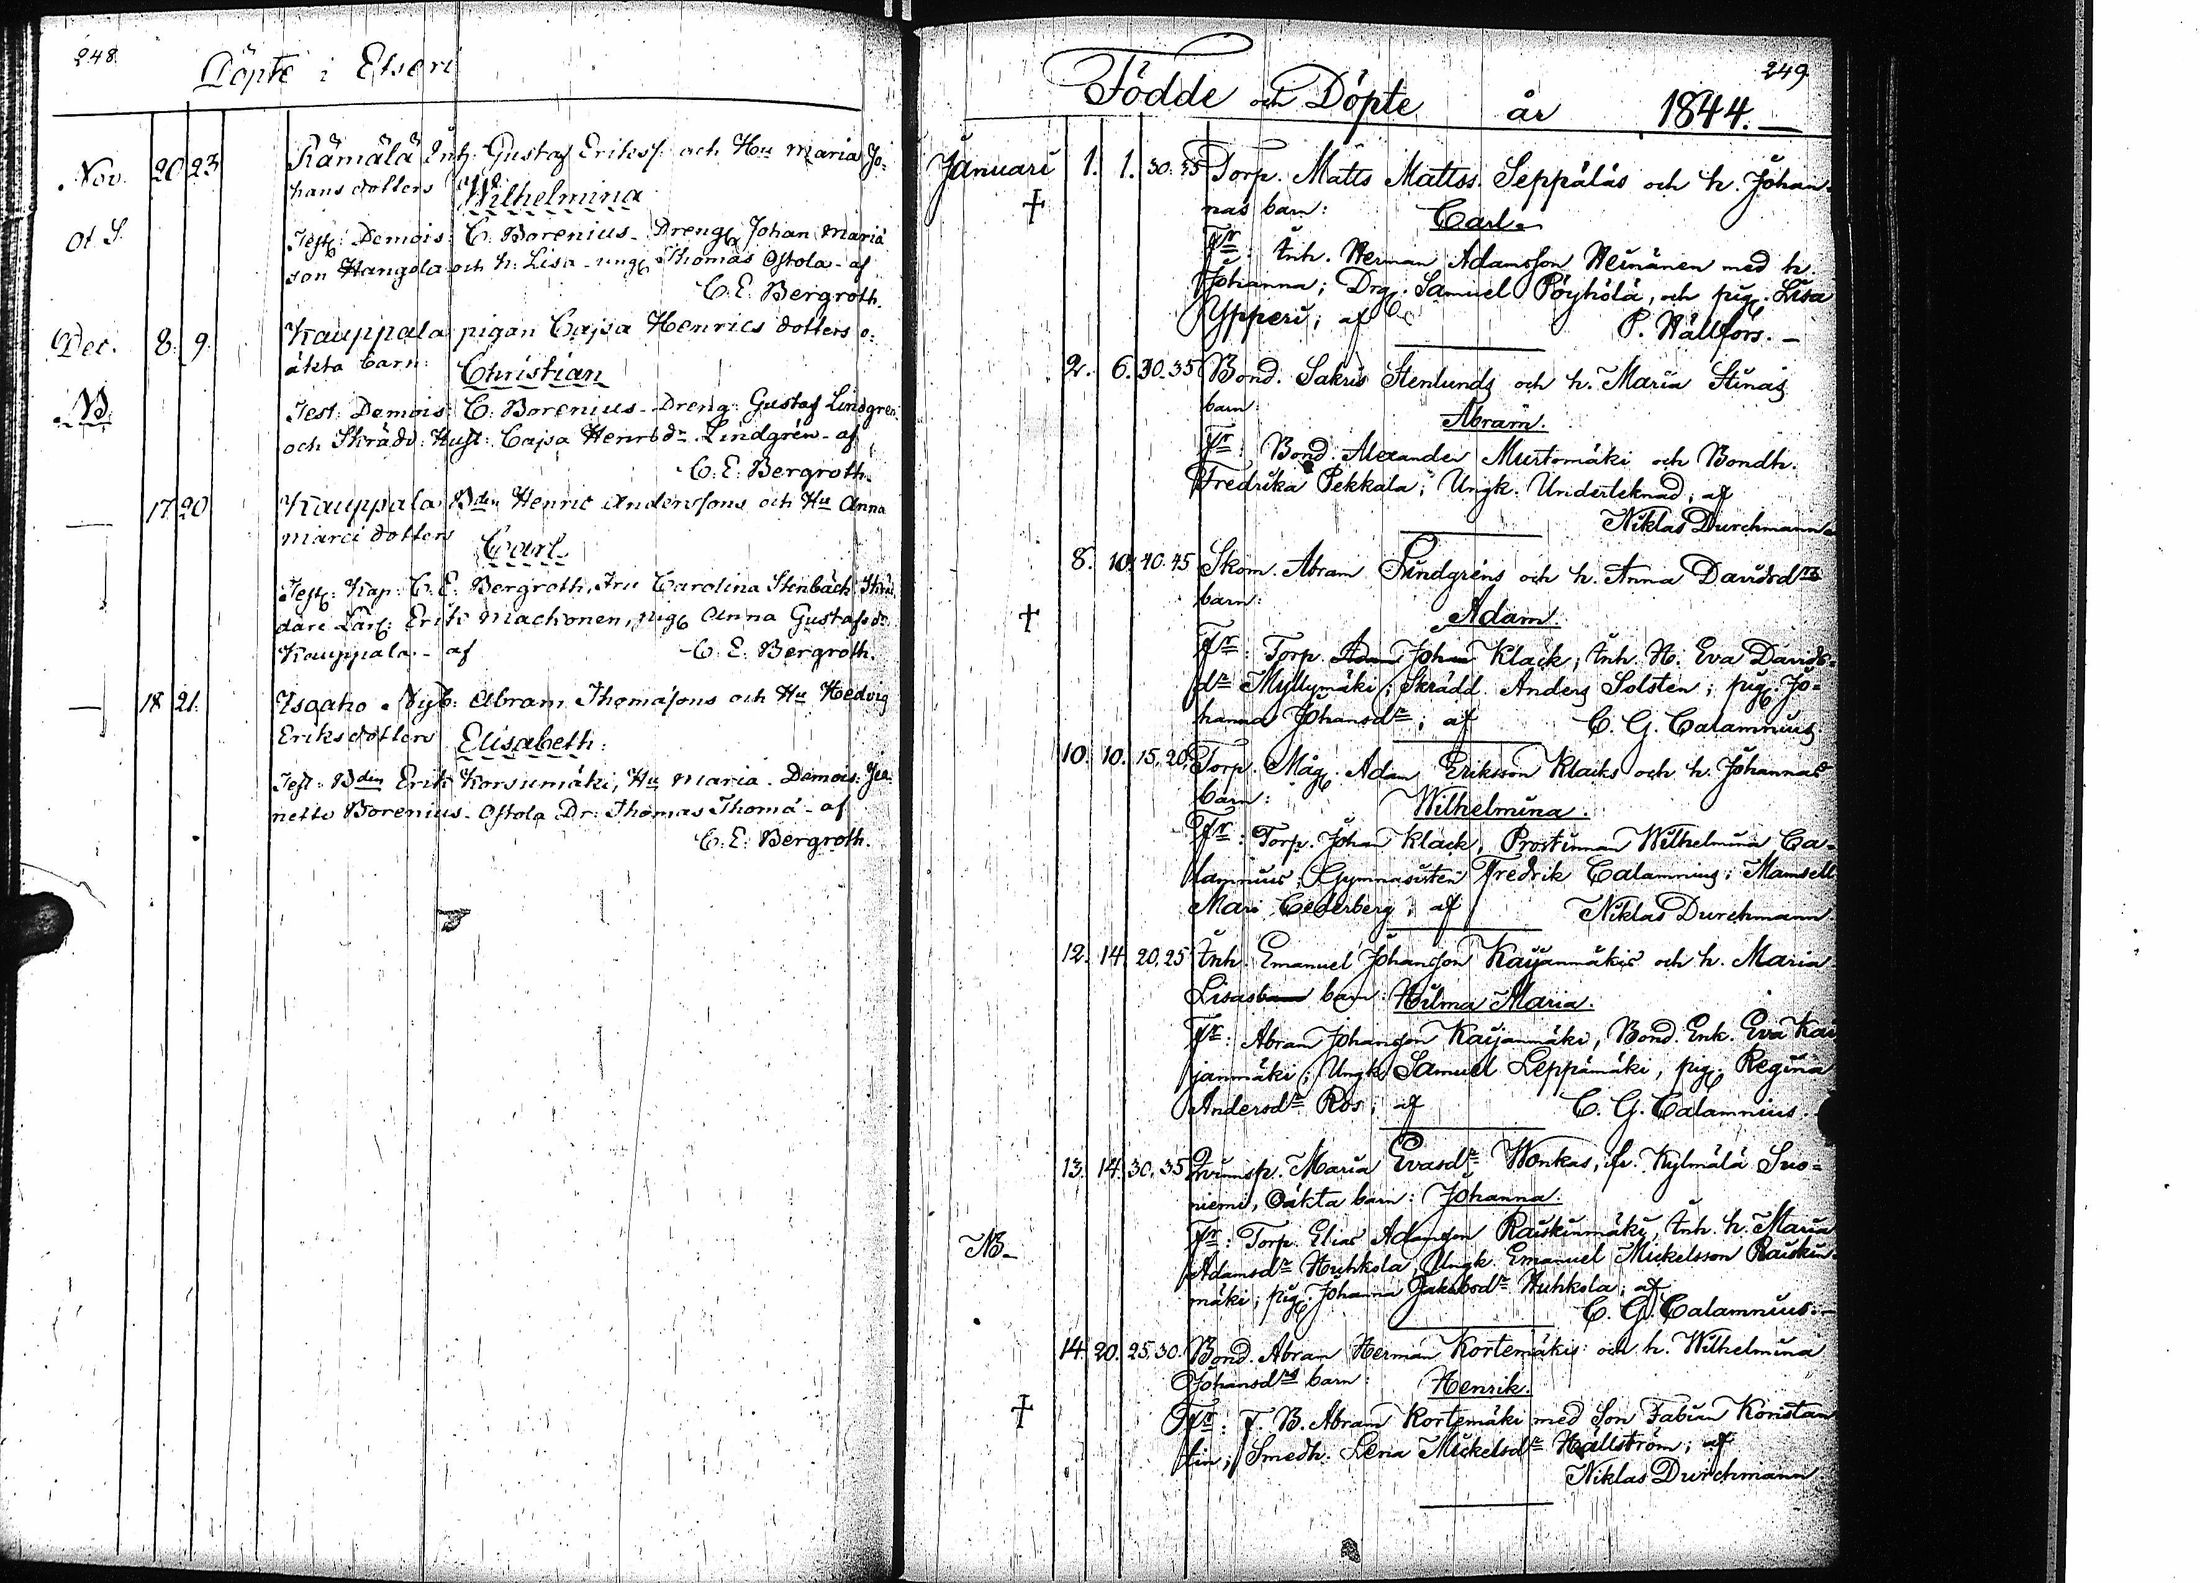 248.
Döpte i Etseri
Nov. 20 23 Rämälä Inh: Gustaf Eriks. och Hu Maria Jo=
hans dotters Wilhelmina
Ot S.
Test: Demois: C. Borenius - Dreng Johan Maria
son Hangola och h. Lisa - ung Thomas Ostola - af
C. E. Bergroth.
Dec. 8. 9. Kauppala pigan Cajsa Henrics dotters o:
äkta barn: Christian
NB.
Test: Demois: C. Borenius - Dreng: Gustaf Lindgren
och Skräd: Hust: Cajsa Henrsdr Lindgrén - af
C. E. Bergroth.
— 17 20 Kauppala Bden Henric Anderssons och Hu Anna
Marci dotters Carl.
Test: Kap: C. E. Bergroth, Fru Carolina Stenbäck, Skräd
dare Lärl: Erik Machonen, pig Anna Gustafsdr
Kauppala - af C. E. Bergroth.
— 18 21. Isoaho Nyb: Abram Thomasons och Hu Hedvig
Eriksdotters Elisabeth:
Test: Bden Erik Korsumäki, Hu Maria - Demois: Jea
nette Borenius - Ostola Dr: Thomas Thomä - af
C. E. Bergroth.
249
Födde och Döpte år 1844.—
Januari 1. 1. 30.35 Torp. Matts Mattss. Seppäläs och h. Johan=
† nas barn: Carl.
Fr: Inh. Herman Adamsson Heinänen med h.
Johanna; Drg. Samuel Pöyhölä, och pig. Lisa
Ypperi; af P. Hällfors.—
2. 6. 30.35 Bond. Sakris Stenlunds och h. Maria Stinas
barn: Abram.
Fr: Bond. Alexander Murtomäki och Bondh.
Fredrika Pekkala; Ungk. Underteknad; af
Niklas Durchmann.
8. 10. 40.45 Skom. Abram Lindgréns och h. Anna Davidsdrs
barn:
† Adam.
Fr: Torp. Adam Johan Klack, Inh. H. Eva Davids=
dr Myllymäki; Skrädd. Anders Solsten; pig. Jo=
hanna Johansdr; af C. G. Calamnius.
10. 10. 15.20. Torp. Måg. Adam Eriksson Klacks och h. Johannas
barn: Wilhelmina.
Fr: Torp. Johan Klack, Prostinnan Wilhelmina Ca=
lamnius; Gymnasisten Fredrik Calamnius; Mamsell
Mari Cederberg; af Niklas Durchmann
12. 14. 20.25 Inh. Emanuel Johansson Kaijanmäkis och h. Maria
Lisas barn barn: Hilma Maria.
Fr: Abram Johansson Kaijanmäki, Bond. Enk. Eva Kai
janmäki; Ungk. Samuel Leppämäki, pig. Regina
Andersdr Ros; af C. G. Calamnius.
13. 14. 30.35 Qvinnsp. Maria Evasdr Wonkas, fr. Kylmälä Suo=
niemi, Oäkta barn: Johanna.
NB— Fr: Torp. Elias Adamsson Raiskinmäki, Inh. h. Maria
Adamsdr Huhkola, Ungk. Emanuel Mickelsson Raiskin=
mäki; pig. Johanna Jakobsdr Huhkola; af
C. G. Calamnius.—
14. 20. 25.30. Bond. Abram Herman Kortemäkis och h. Wilhelmina
Johansdrs barn: Henrik.
† Fr: F. B. Abram Kortemäki med Son Fabian Konstan
tin; Smedh. Lena Mickelsdr Hällström; af
Niklas Durchmann.